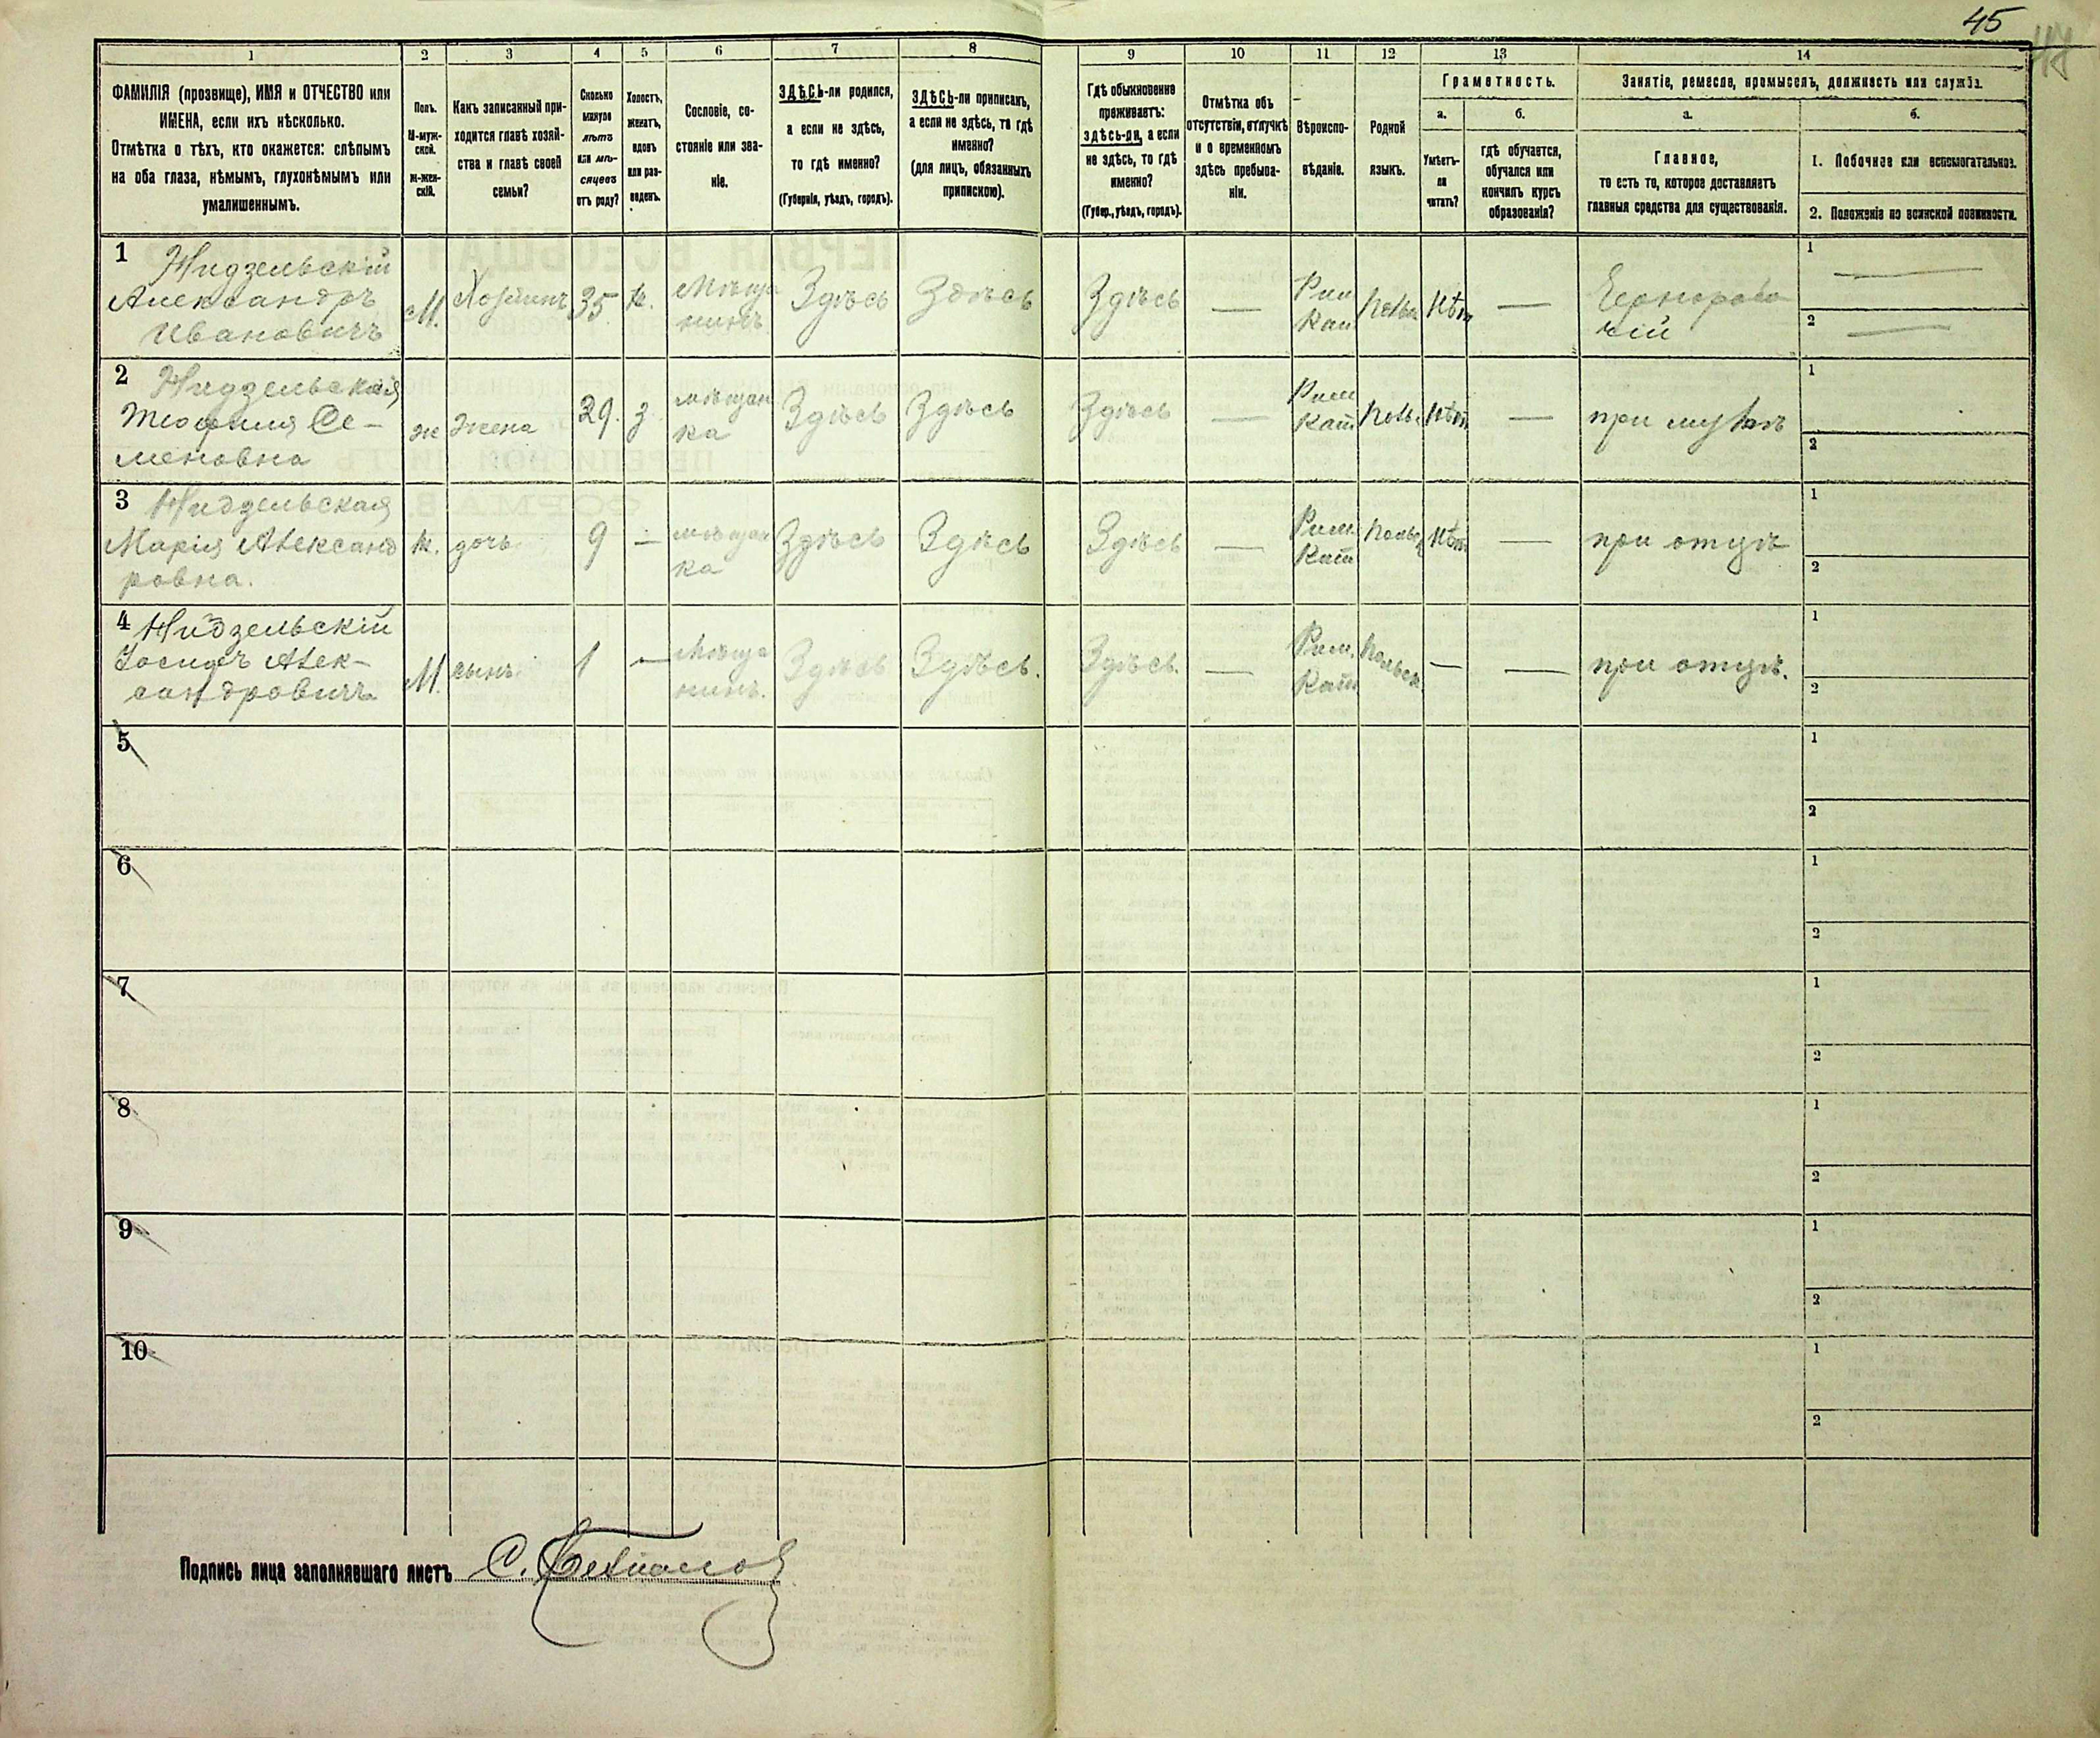 45
47
1 2 3 4 5 6 7 8 9 10 11 12 13 14
ФАМИЛІЯ (прозвище), ИМЯ и ОТЧЕСТВО или
ИМЕНА, если ихъ нѣсколько.
Отмѣтка о тѣхъ, кто окажется: слѣпымъ
на оба глаза, нѣмымъ, глухонѣмымъ или
умалишеннымъ.
Полъ.
М-муж-
ской.
ж-жен-
скій.
Какъ записанный при-
ходится главѣ хозяй-
ства и главѣ своей
семьи?
Сколько
минуло
лѣтъ
или мѣ-
сяцевъ
отъ роду?
Холостъ,
женатъ,
вдовъ
или раз-
веденъ.
Сословіе, со-
стояніе или зва-
ніе.
ЗДѢСЬ-ли родился,
а если не здѣсь,
то гдѣ именно?
(Губернія, уѣздъ, городъ).
ЗДѢСЬ-ли приписанъ,
а если не здѣсь, то гдѣ
именно?
(для лицъ, обязанныхъ
припискою).
Гдѣ обыкновенно
проживаетъ:
здѣсь-ли, а если
не здѣсь, то гдѣ
именно?
(Губер., уѣздъ, городъ).
Отмѣтка объ
отсутствіи, отлучкѣ
и о временномъ
здѣсь пребыва-
ніи.
Вѣроиспо-
вѣданіе.
Родной
языкъ.
Грамотность.
а.
Умѣетъ-
ли
читать?
б.
гдѣ обучается,
обучался или
кончилъ курсъ
образованія?
Занятіе, ремесло, промыселъ, должность или служба.
а.
Главное,
то есть то, которое доставляетъ
главныя средства для существованія.
б.
1. Побочное или вспомогательное.
2. Положеніе по воинской повинности.
1 Нидзельскій
Александръ
Ивановичъ
М. Хозяинъ 35 ж. Мѣща
нинъ Здѣсь Здѣсь Здѣсь — Рим
Кат Польс Нѣт —
чій
1 —
2 —
2 Нидзельская
Теофилия Се-
меновна
ж жена 29. з мѣщан
ка Здѣсь Здѣсь Здѣсь — Рим
Кат Польс Нѣт — при мужѣ
1
2
3 Нидзельская
Марія Александ
ровна.
ж. дочь 9 — мѣщан
ка Здѣсь Здѣсь Здѣсь — Рим.
Кат Польс Нѣт — при отцѣ
1
2
4 Нидзельскій
Іосифъ Алек-
сандровичъ
М. сынъ. 1 — Мѣща
нинъ. Здѣсь Здѣсь. Здѣсь. — Рим.
Кат Польск. — — при отцѣ.
1
2
5
1
2
6
1
2
7
1
2
8
1
2
9
1
2
10
1
2
Подпись лица заполнявшаго листъ С.